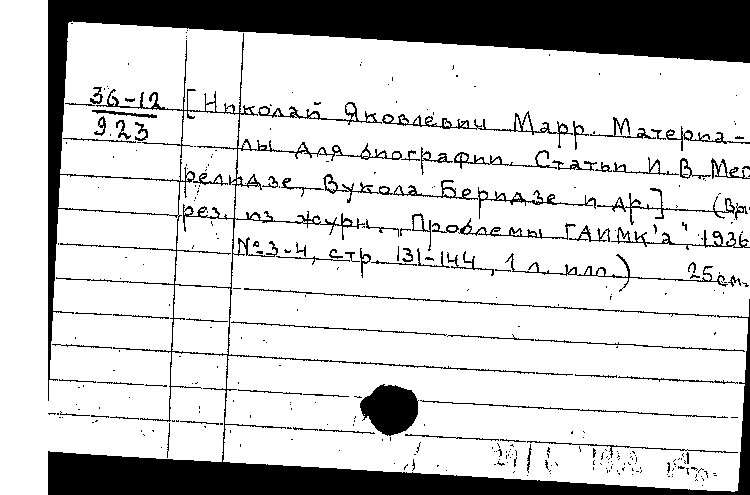 36-12
923
[Николай Яковлевич Марр. Материа-
лы для биографии. Статьи И. В. Мег
релидзе, Вукола Беридзе и др.] (Вы
рез. из журн. "Проблемы ГАИМК'а". 1936
№3-4, стр. 131-144, 1 л. илл.) 25см.